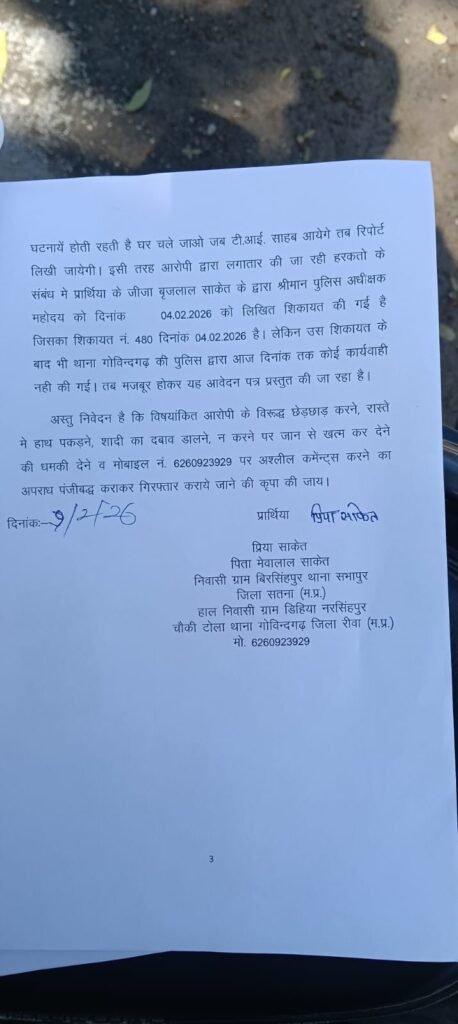 घटनायें होती रहती है घर चले जाओ जब टी.आई. साहब आयेगे तब रिपोर्ट
लिखी जायेगी। इसी तरह आरोपी द्वारा लगातार की जा रही हरकतो के
संबंध मे प्रार्थिया के जीजा बृजलाल साकेत के द्वारा श्रीमान पुलिस अधीक्षक
महोदय को दिनांक 04.02.2026 को लिखित शिकायत की गई है
जिसका शिकायत नं. 480 दिनांक 04.02.2026 है। लेकिन उस शिकायत के
बाद भी थाना गोविन्दगढ़ की पुलिस द्वारा आज दिनांक तक कोई कार्यवाही
नही की गई। तब मजबूर होकर यह आवेदन पत्र प्रस्तुत की जा रहा है।
अस्तु निवेदन है कि विषयांकित आरोपी के विरूद्ध छेड़छाड़ करने, रास्ते
मे हाथ पकड़ने, शादी का दबाव डालने, न करने पर जान से खत्म कर देने
की धमकी देने व मोबाइल नं. 6260923929 पर अश्लील कमेंन्ट्स करने का
अपराध पंजीबद्ध कराकर गिरफ्तार कराये जाने की कृपा की जाय।
दिनांकः- 9/2/26 प्रार्थिया प्रिया साकेत
प्रिया साकेत
पिता मेवालाल साकेत
निवासी ग्राम बिरसिंहपुर थाना सभापुर
जिला सतना (म.प्र.)
हाल निवासी ग्राम डिहिया नरसिंहपुर
चौकी टोला थाना गोविन्दगढ़ जिला रीवा (म.प्र.)
मो. 6260923929
3